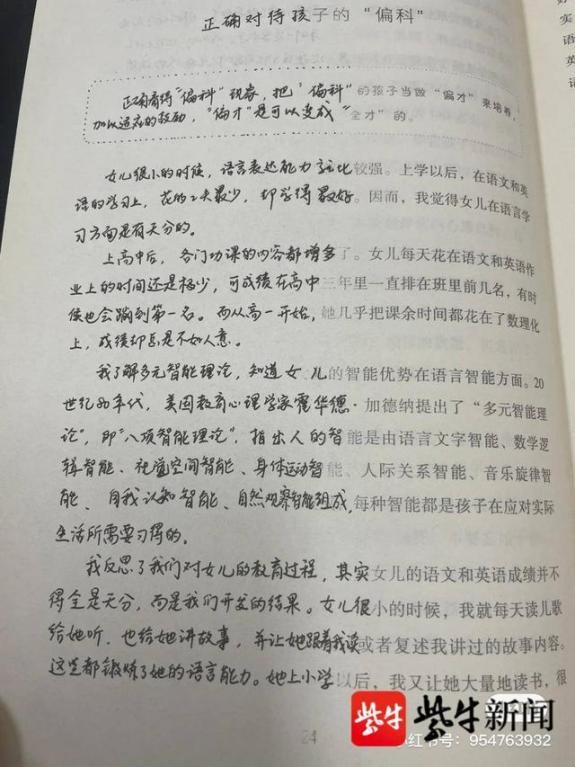 正确对待孩子的“偏科”
正确看待“偏科”现象，把“偏科”的孩子当做“偏才”来培养，
加以适应的鼓励，“偏才”是可以变成“全才”的。
女儿很小的时候，语言表达能力就比较强。上学以后，在语文和英
语的学习上，花的工夫最少，却学得最好。因而，我觉得女儿在语言学
习方面是有天分的。
上高中后，各门功课的内容都增多了。女儿每天花在语文和英语作
业上的时间还是极少，可成绩在高中三年里一直排在班里前几名，有时
候也会蹦到第一名。而从高一开始，她几乎把课余时间都花在了数理化
上，成绩却总是不如人意。
我了解多元智能理论，知道女儿的智能优势在语言智能方面。20
世纪80年代，美国教育心理学家霍华德·加德纳提出了“多元智能理
论”，即“八项智能理论”，指出人的智能是由语言文字智能、数学逻
辑智能、视觉空间智能、身体运动智能、人际关系智能、音乐旋律智
能、自我认知智能、自然观察智能组成，每种智能都是孩子在应对实际
生活所需要习得的。
我反思了我们对女儿的教育过程，其实女儿的语文和英语成绩并不
得全是天分，而是我们开发的结果。女儿很小的时候，我就每天读儿歌
给她听，也给她讲故事，并让她跟着我读或者复述我讲过的故事内容。
这些都锻炼了她的语言能力。她上小学以后，我又让她大量地读书，很
24
紫牛 紫牛新闻
小红书号：954763932